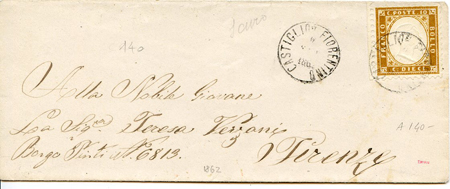 Sauro
140
CASTIGLION FIORENTINO
FRANCO C. POSTE 10 BOLLO C. DIECI
Alla Nobile Giovane
La Sig.ra Teresa Vezzani
Borgo Pinti N. 6813.
Firenze
A 140-
1862